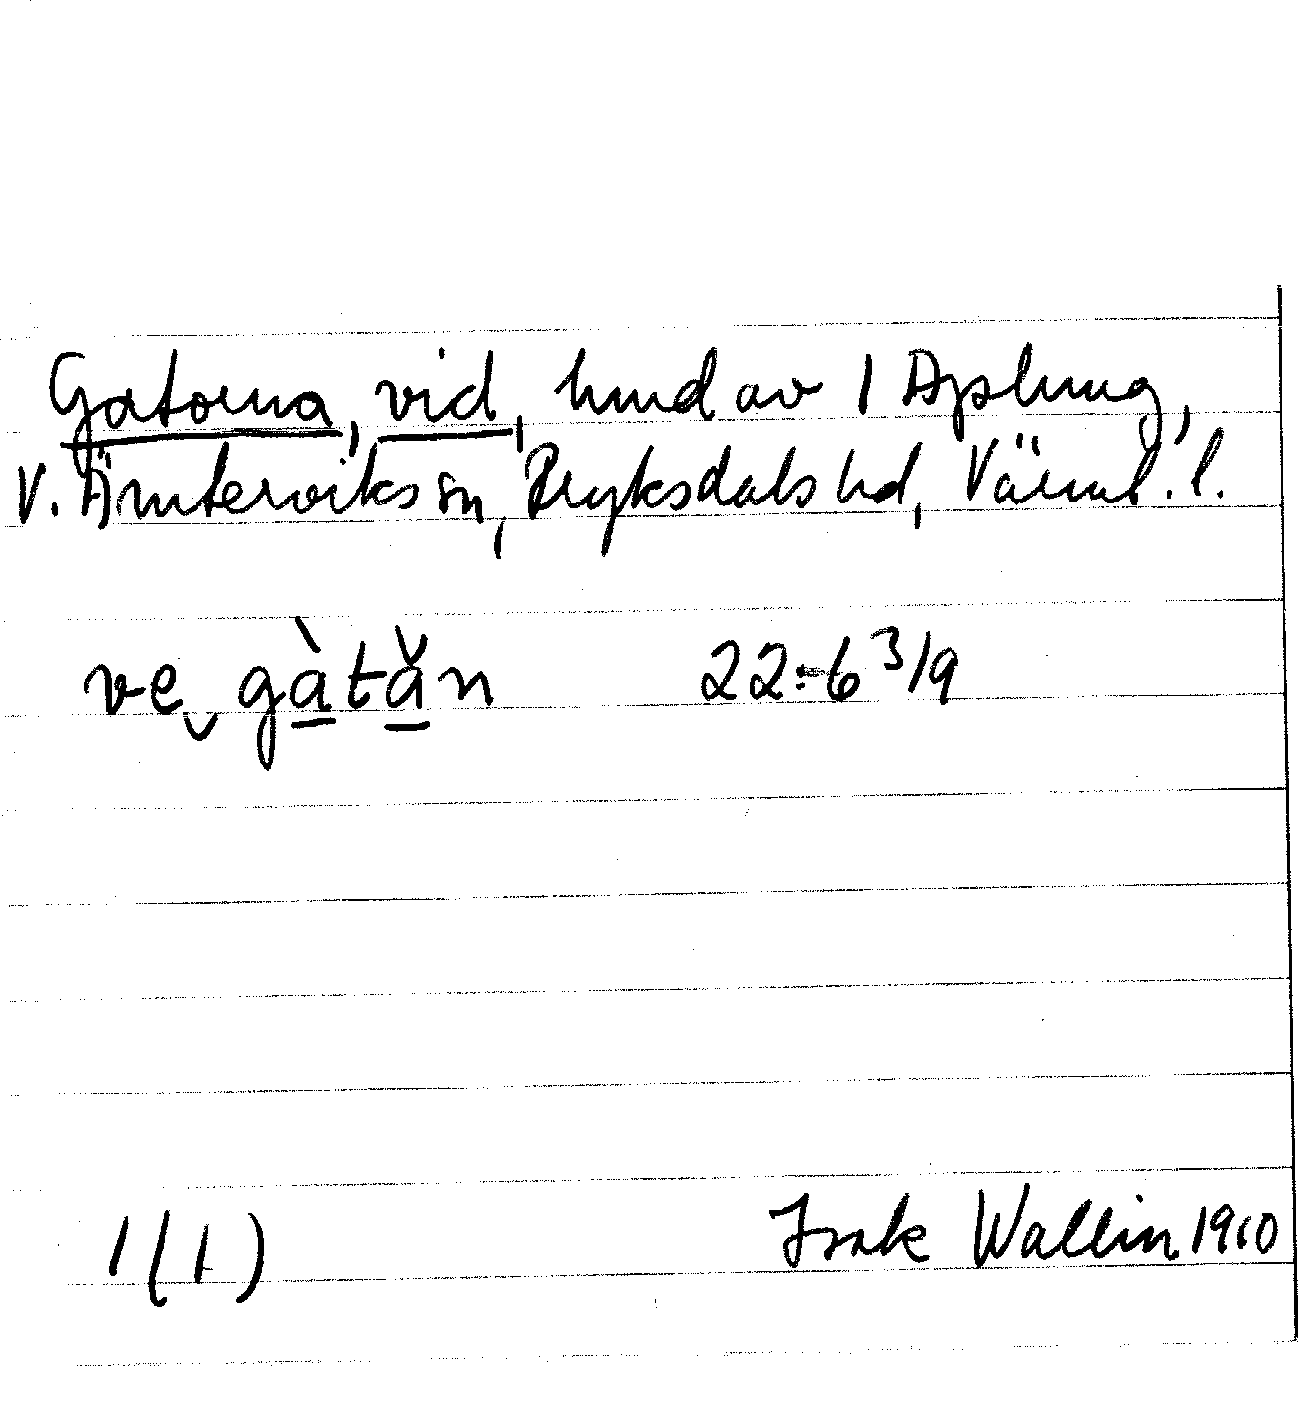 Gatorna, vid, hmd av 1 Asplung,
V. Ämterviks sn, Fryksdals hd, Värml. l.
ve͜ gà̲tă̲n 22:6 3/9
1(1) Isak Wallin 1910